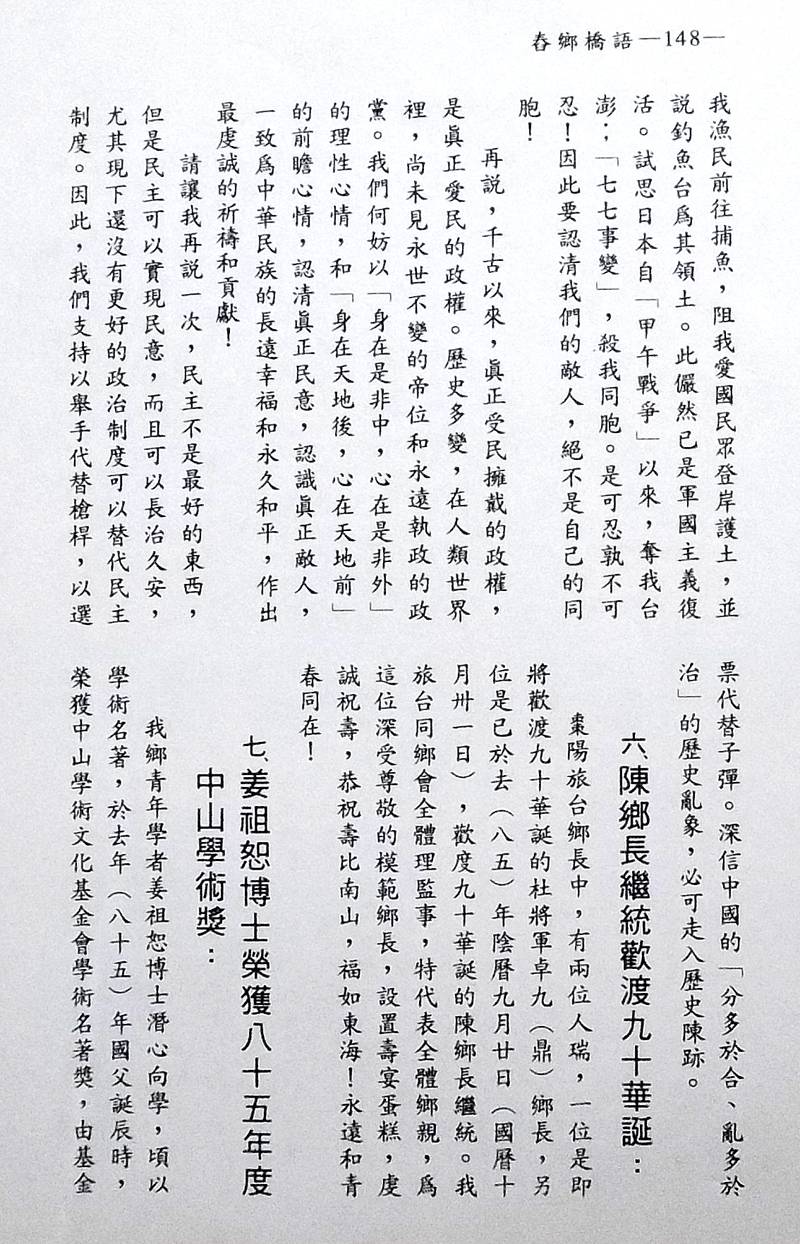 舂鄉橋語—148—
我漁民前往捕魚，阻我愛國民眾登岸護土，並
説釣魚台爲其領土。此儼然已是軍國主義復
活。試思日本自「甲午戰爭」以來，奪我台
澎；「七七事變」，殺我同胞。是可忍孰不可
忍！因此要認清我們的敵人，絕不是自己的同
胞！
再説，千古以來，眞正受民擁戴的政權，
是眞正愛民的政權。歷史多變，在人類世界
裡，尚未見永世不變的帝位和永遠執政的政
黨。我們何妨以「身在是非中，心在是非外」
的理性心情，和「身在天地後，心在天地前」
的前瞻心情，認清眞正民意，認識眞正敵人，
一致爲中華民族的長遠幸福和永久和平，作出
最虔誠的祈禱和貢獻！
請讓我再説一次，民主不是最好的東西，
但是民主可以實現民意，而且可以長治久安，
尤其現下還沒有更好的政治制度可以替代民主
制度。因此，我們支持以舉手代替槍桿，以選
票代替子彈。深信中國的「分多於合、亂多於
治」的歷史亂象，必可走入歷史陳跡。
六、陳鄉長繼統歡渡九十華誕：
棗陽旅台鄉長中，有兩位人瑞，一位是即
將歡渡九十華誕的杜將軍卓九（鼎）鄉長，另
位是已於去（八五）年陰曆九月廿日（國曆十
月卅一日），歡度九十華誕的陳鄉長繼統。我
旅台同鄉會全體理監事，特代表全體鄉親，爲
這位深受尊敬的模範鄉長，設置壽宴蛋糕，虔
誠祝壽，恭祝壽比南山，福如東海！永遠和青
春同在！
七、姜祖恕博士榮獲八十五年度
中山學術獎：
我鄉青年學者姜祖恕博士潛心向學，頃以
學術名著，於去年（八十五）年國父誕辰時，
榮獲中山學術文化基金會學術名著獎，由基金